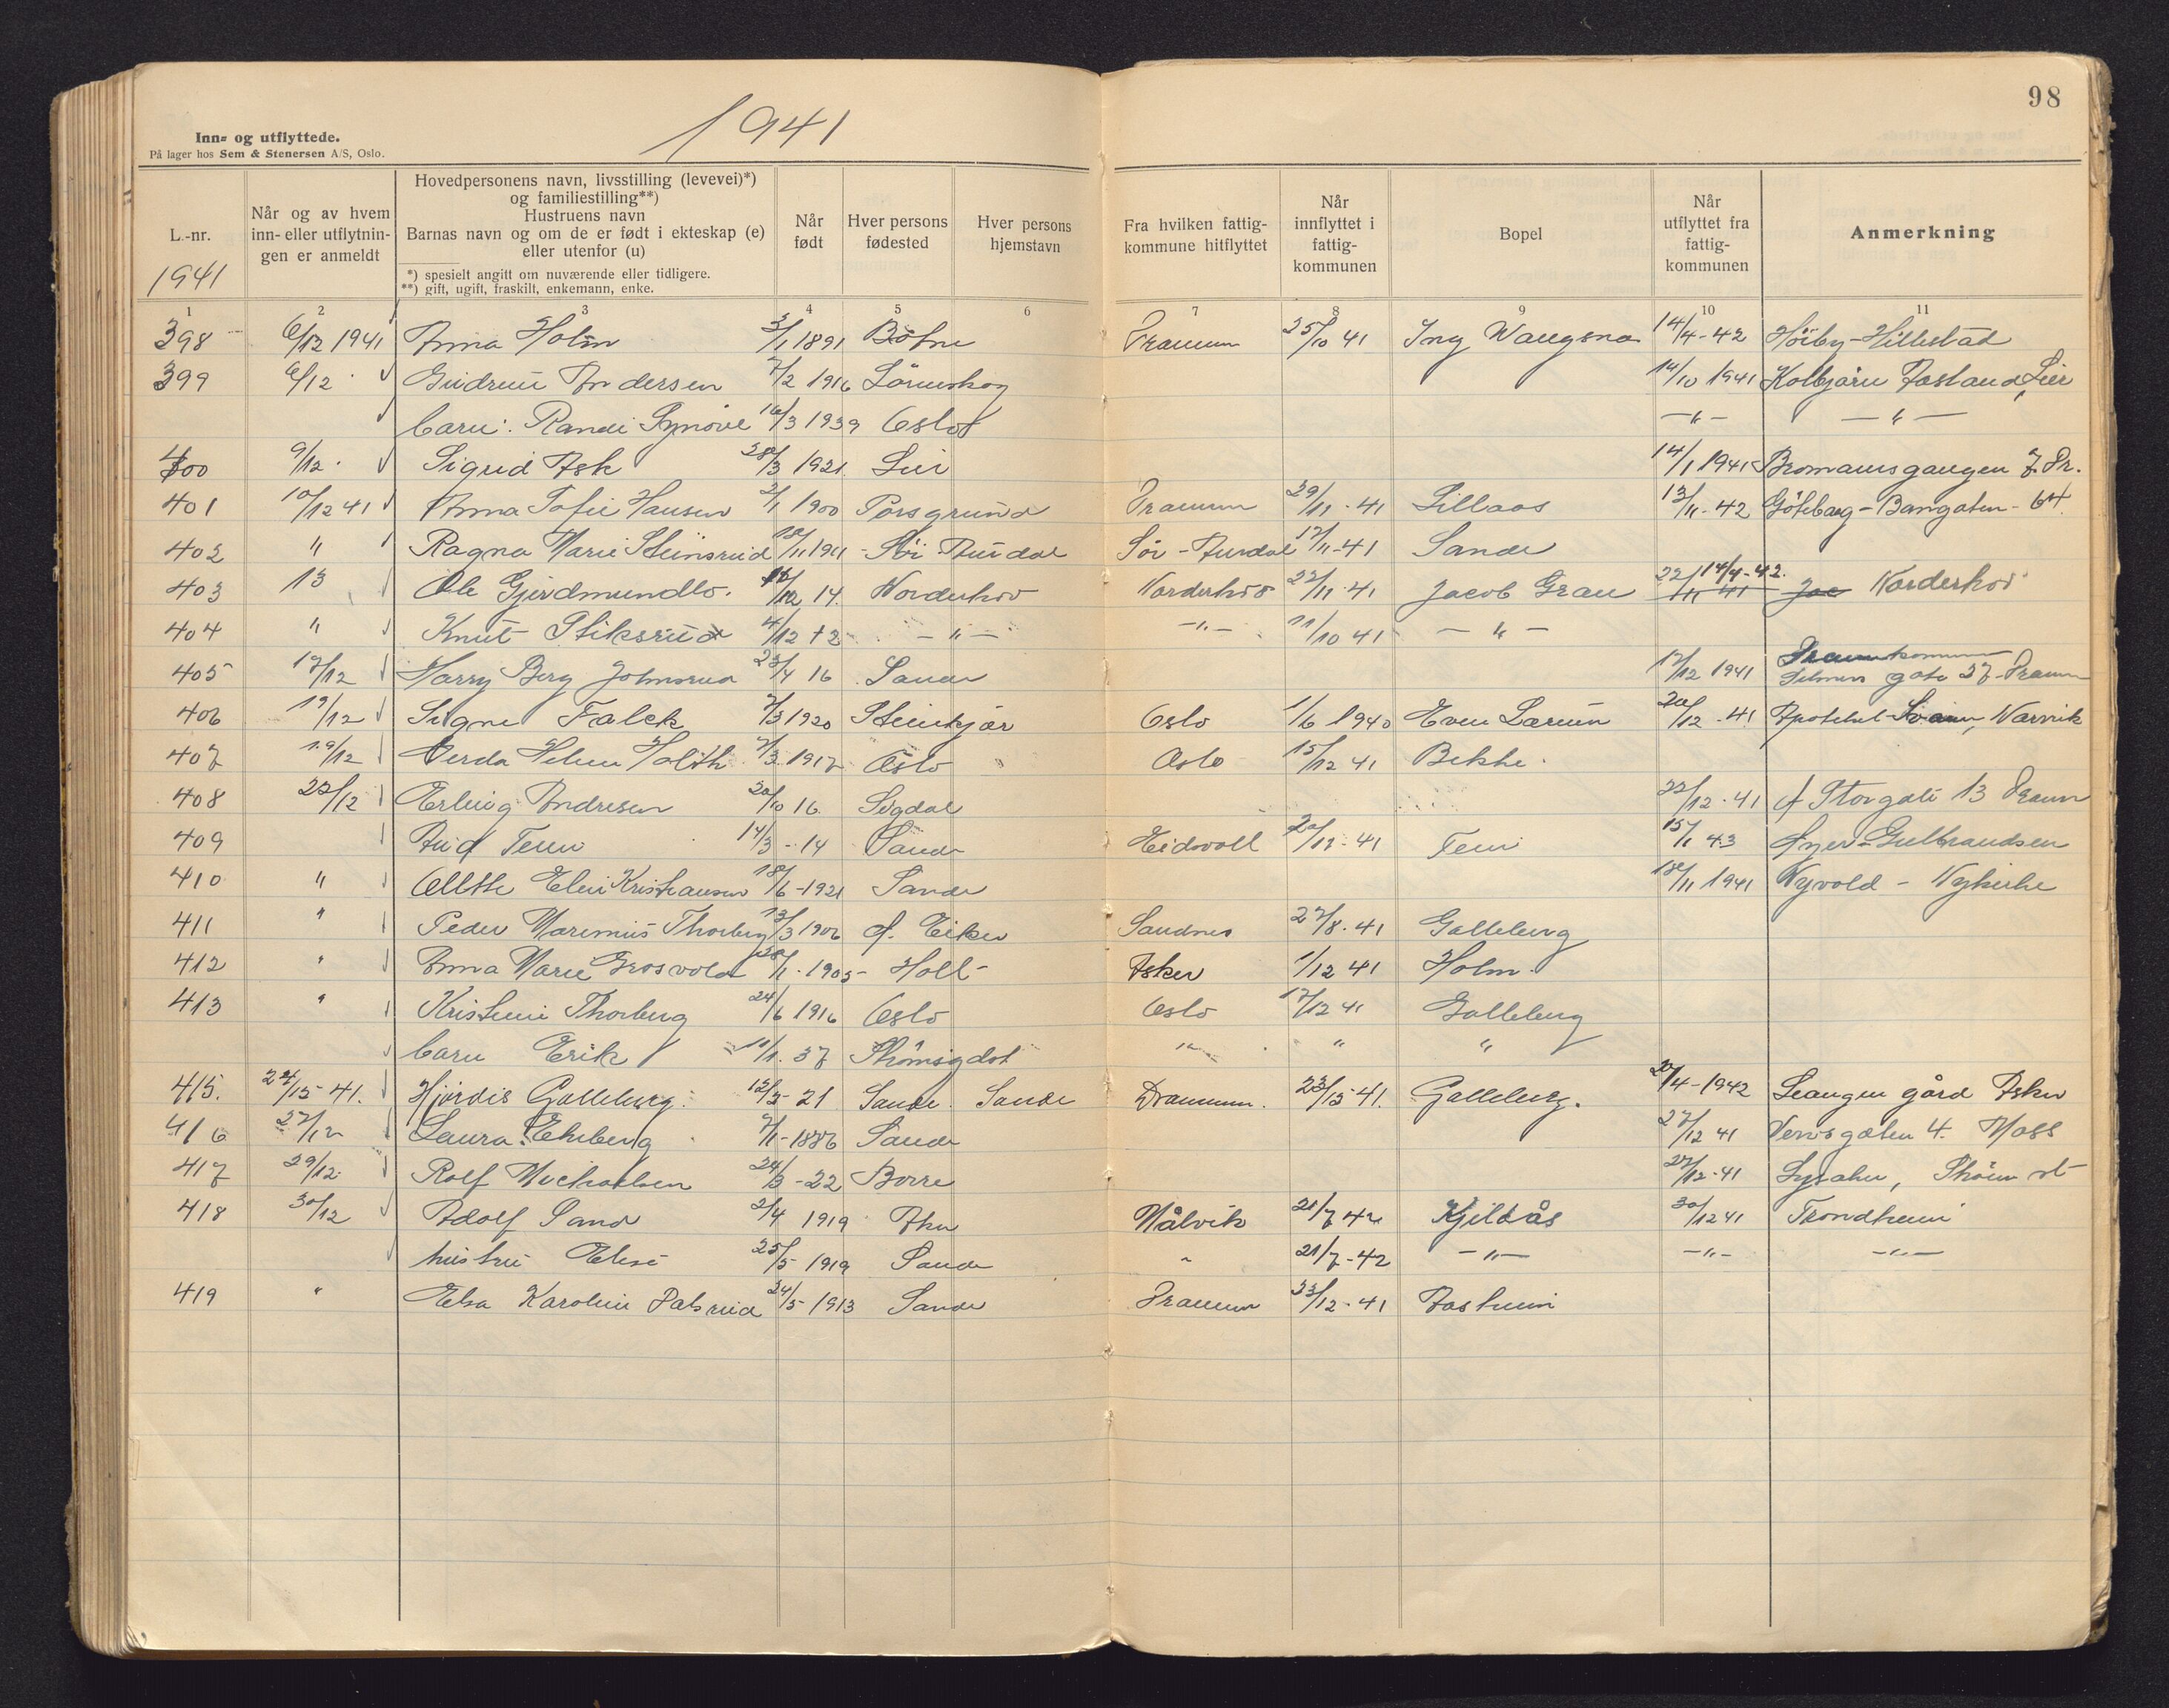 1941
98
Inn- og utflyttede.
På lager hos Sem & Stenersen A/S, Oslo.
L.-nr.
1941
Når og av hvem inn- eller utflytnin- gen er anmeldt
Hovedpersonens navn, livsstilling (levevei)*)
og familiestilling**)
Hustruens navn
Barnas navn og om de er født i ekteskap (e)
eller utenfor (u)
*) spesielt angitt om nuværende eller tidligere.
**) gift, ugift, fraskilt, enkemann, enke.
Når født
Hver persons fødested
Hver persons hjemstavn
Fra hvilken fattig- kommune hitflyttet
Når innflyttet i fattig- kommunen
Bopel
Når utflyttet fra fattig- kommunen
Anmerkning
1 2 3 4 5 6 7 8 9 10 11
398 6/12 1941 Anna Holm 3/1 1891 Drammen 25/10 41 14/4-42 Höiby-Hillestad
399 6/12 Gudrun Andersen 7/2 1916 Lörenskog 14/10 1941 Lier
barn: Randi Synöve 16/3 1939 Oslo -"- -"-
400 9/12 Sigrid Ask 28/3 1921 Lier 14/1 1941 Bromansgangen 7 Dr.
401 10/12 41 Anna Sofie Hansen 2/1 1900 Porsgrund Drammen 29/11-41 Lillaas 13/11-42 Göteborg-Bangaten-64.
402 " Ragna Marie Steinsrud 18/11 1911 Sör-Aurdal Sör-Aurdal 17/11-41 Sande
403 13 Ole Gjerdmundbo. 14. Norderhov Norderhov 22/11-41 Jacob Grau 14/4-42. Norderhov
404 " Knut Stiksrud 4/12 -"- -"- 11/10 41 -"-
405 17/12 Harry Berg Johnsrud 23/4 16 Sande 17/12 1941 gate 37 Dramm
406 19/12 Signe Falck 7/3 1920 Steinkjær Oslo 1/6 1940 Even Lærum 20/12-41 Apoteket Svanen, Narvik
407 19/12 Gerda Helene Holth 7/3 1917 Oslo Oslo 15/12 41 Bekke.
408 22/12 Erling Andresen 20/10 16 Sigdal 22/12-41 Storgate 13 Dramm
409 Aud Tenn 14/3-14 Sande Eidsvoll 20/12-41 15/1 43 Gulbrandsen
410 " Elin Kristiansen 18/6-1921 Sande 18/11 1941 Nyvold - Nykirke
411 " Peder Maremius Thorberg 13/3 1906 Ø. Eiker Sandnes 27/8-41 Galleberg
412 " Anna Marie Grosvold /1-1905- Holt- Asker 1/12 41 Holm.
413 " Kristine Thorberg 24/6 1916 Oslo Oslo 17/12 41 Galleberg
barn Erik 11/1. 37 Strömsgodset " " "
415. 24/12-41. Hjørdis Galleberg. 21 Sande. Sande Drammen. 23/12-41. Galleberg. 20/4-1942 Leangen gård Asker
416 27/12 Laura Ekeberg 7/1-1886 Sande 27/12 41 gaten 4. Moss
417 29/12 Rolf Michaelsen 24/3-22 Borre 27/12-41 Lysaker, Ström st
418 30/12 Adolf Sand 2/4 1919 Målvik 21/7 42 Kjeldås 30/12 41 Trondheim
hustru Else 25/5-1919 Sande " 21/7-42 -"- -"- -"-
419 " Elsa Karoline Dalsrud 24/5-1913 Sande Drammen 23/12-41 Aasheim